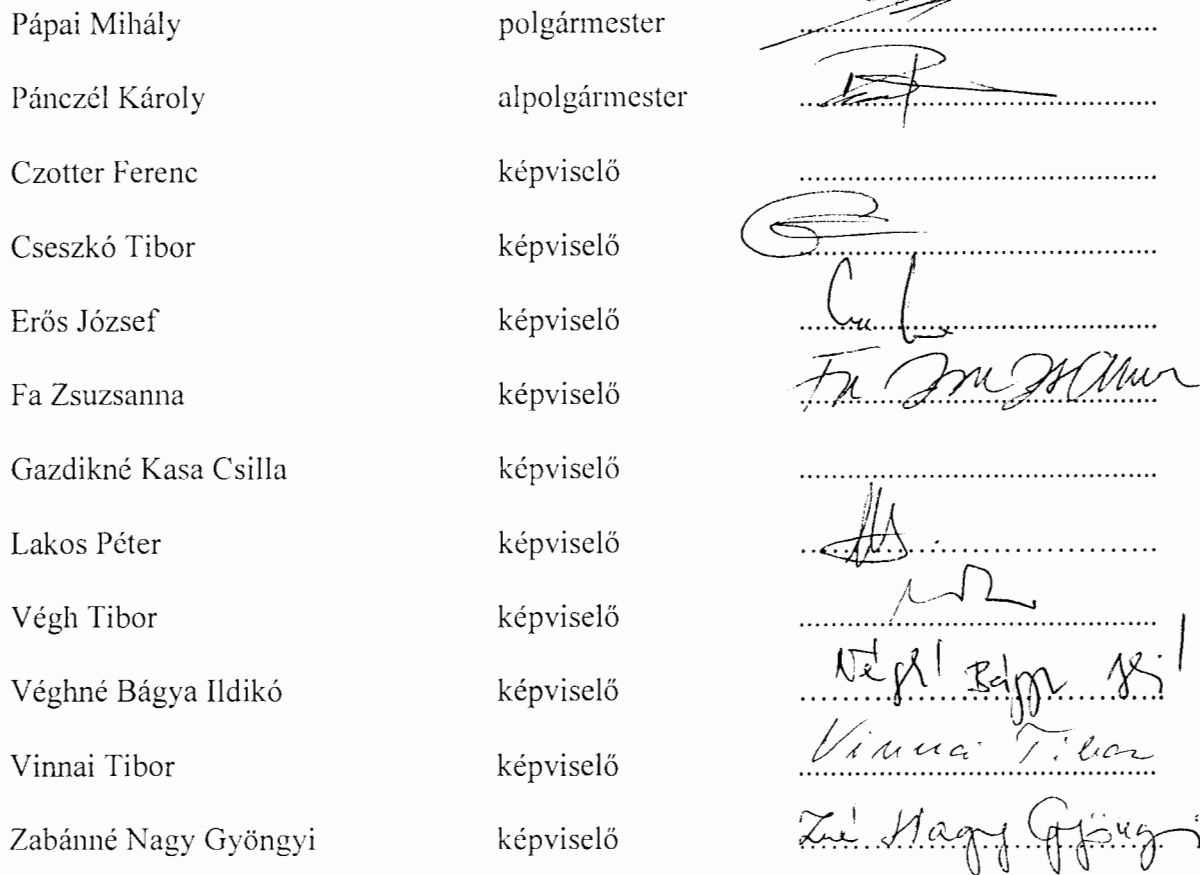 Pápai Mihály polgármester
Pánczél Károly alpolgármester
Czotter Ferenc képviselő
Cseszkó Tibor képviselő
Erős József képviselő
Fa Zsuzsanna képviselő Fa Zsuzsanna
Gazdikné Kasa Csilla képviselő
Lakos Péter képviselő
Végh Tibor képviselő
Véghné Bágya Ildikó képviselő
Vinnai Tibor képviselő Vinnai Tibor
Zabánné Nagy Gyöngyi képviselő Zné Nagy Gyöngyi